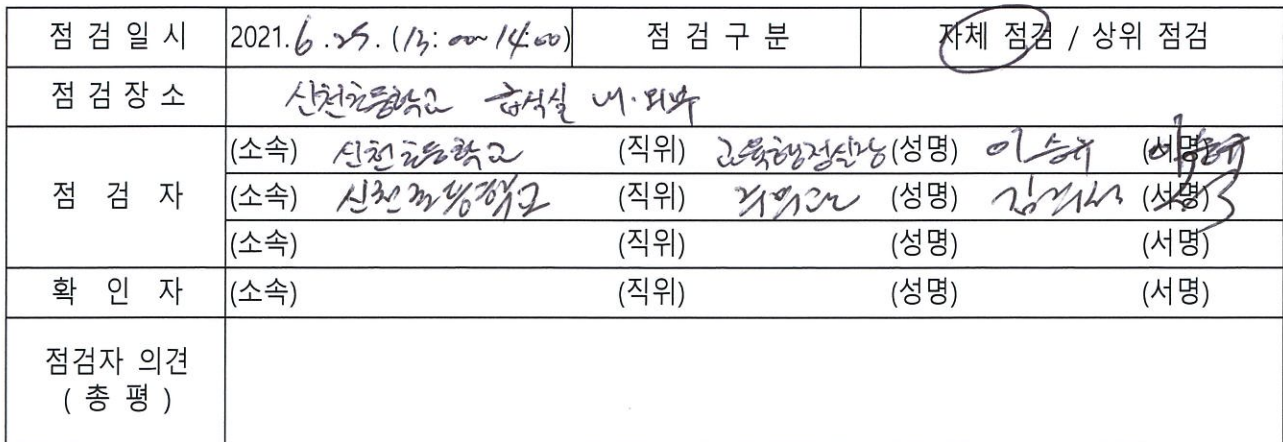 점 검 일 시 2021. 6. 25. (13:00~14:00) 점 검 구 분 자체 점검 / 상위 점검
점 검 장 소 신천초등학교 급식실 내·외부
(소속) 신천초등학교 (직위) 교육행정실장 (성명) 이승규 (서명)
점 검 자 (소속) 신천초등학교 (직위) (성명) (서명)
(소속) (직위) (성명) (서명)
확 인 자 (소속) (직위) (성명) (서명)
점검자 의견
( 총 평 )